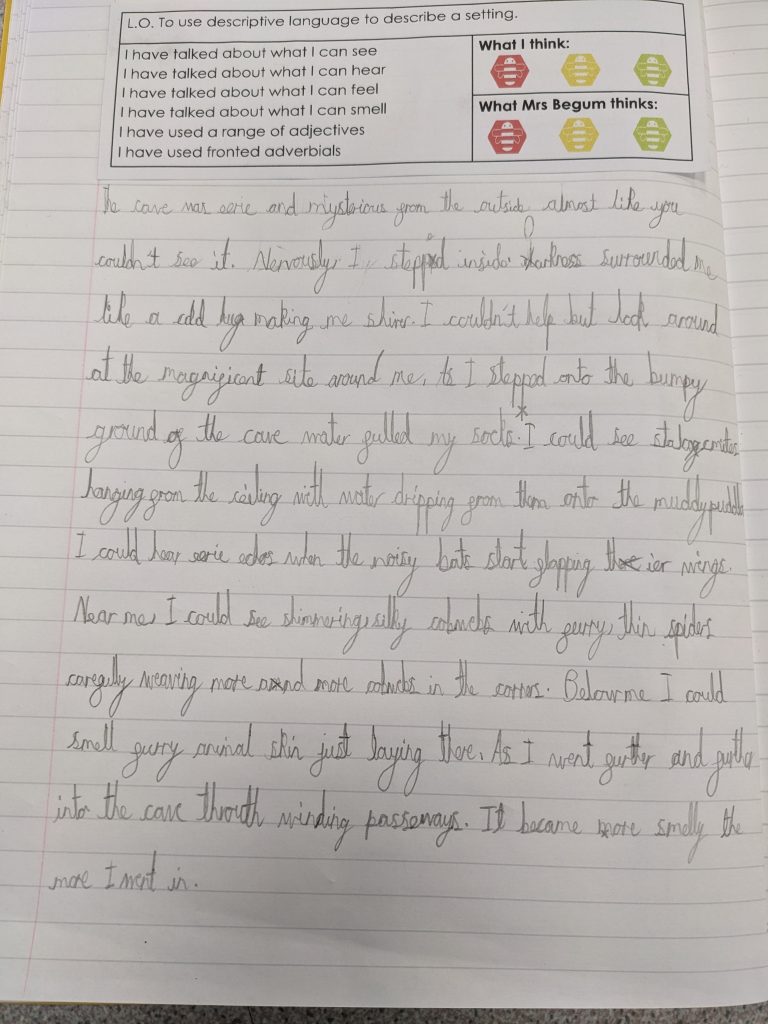 L.O. To use descriptive language to describe a setting.
I have talked about what I can see
I have talked about what I can hear
I have talked about what I can feel
I have talked about what I can smell
I have used a range of adjectives
I have used fronted adverbials
What I think:
What Mrs Begum thinks:
The cave was eerie and mysterious from the outside almost like you
couldn't see it. Nervously, I stepped inside. darkness surrounded me
like a cold hug making me shiver. I couldn't help but look around
at the magnificant site around me. As I stepped onto the bumpy
ground of the cave water fulled my socks.* I could see
hanging from the ceiling with water dripping from them onto the muddy puddle
I could hear eerie echos when the noisy bats start flapping their wings.
Near me, I could see shimmering, silky cobwebs with furry, thin spiders
carefully weaving more and more cobwebs in the corners. Below me I could
smell furry animal skin just laying there. As I went further and further
into the cave throuth winding passeways. It became more smelly the
more I went in.